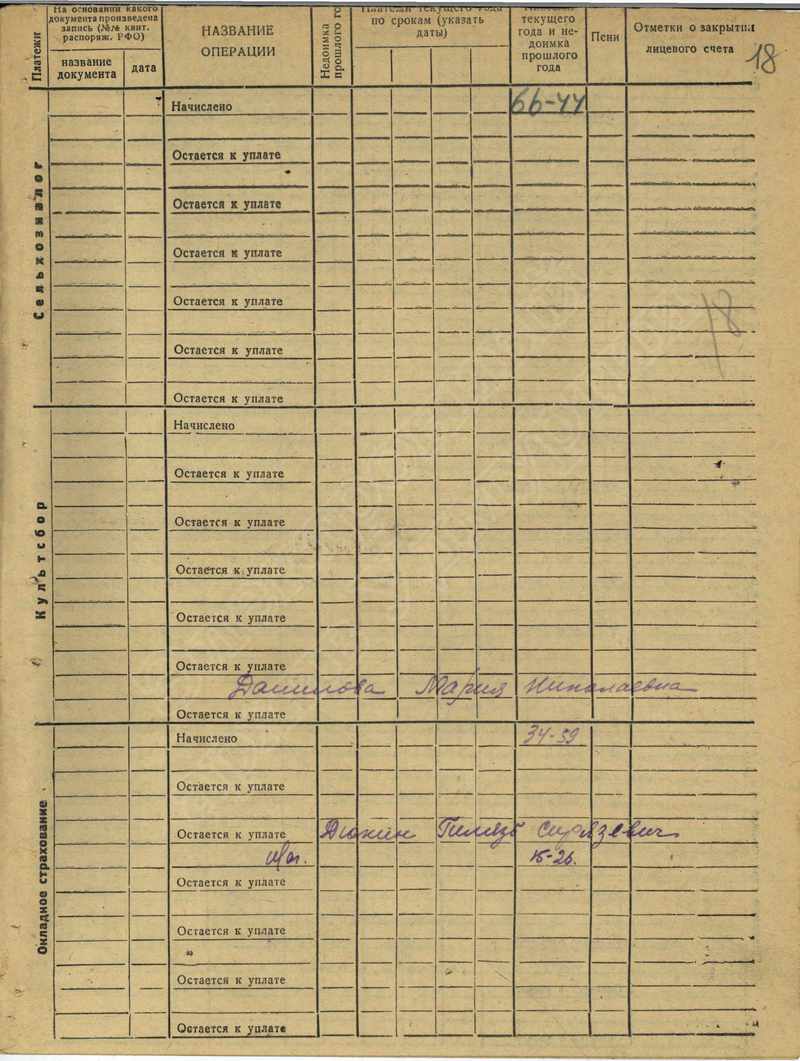 Платежи
На основании какого
документа произведена
запись (№№ квит.
распоряж. РФО)
название
документа
дата
НАЗВАНИЕ
ОПЕРАЦИИ
Недоимка
прошлого го
Платежи текущего года
по срокам (указать
даты)
текущего
года и не-
доимка
прошлого
года
Пени
Отметки о закрытии
лицевого счета
18
Сельхозналог
Начислено
66-44
Остается к уплате
Остается к уплате
Остается к уплате
Остается к уплате
18
Остается к уплате
Остается к уплате
Культсбор
Начислено
Остается к уплате
Остается к уплате
Остается к уплате
Остается к уплате
Остается к уплате
Данилова Мария Николаевна
Остается к уплате
Окладное страхование
Начислено
34-59
Остается к уплате
Остается к уплате
15-26.
Остается к уплате
Остается к уплате
Остается к уплате
Остается к уплате